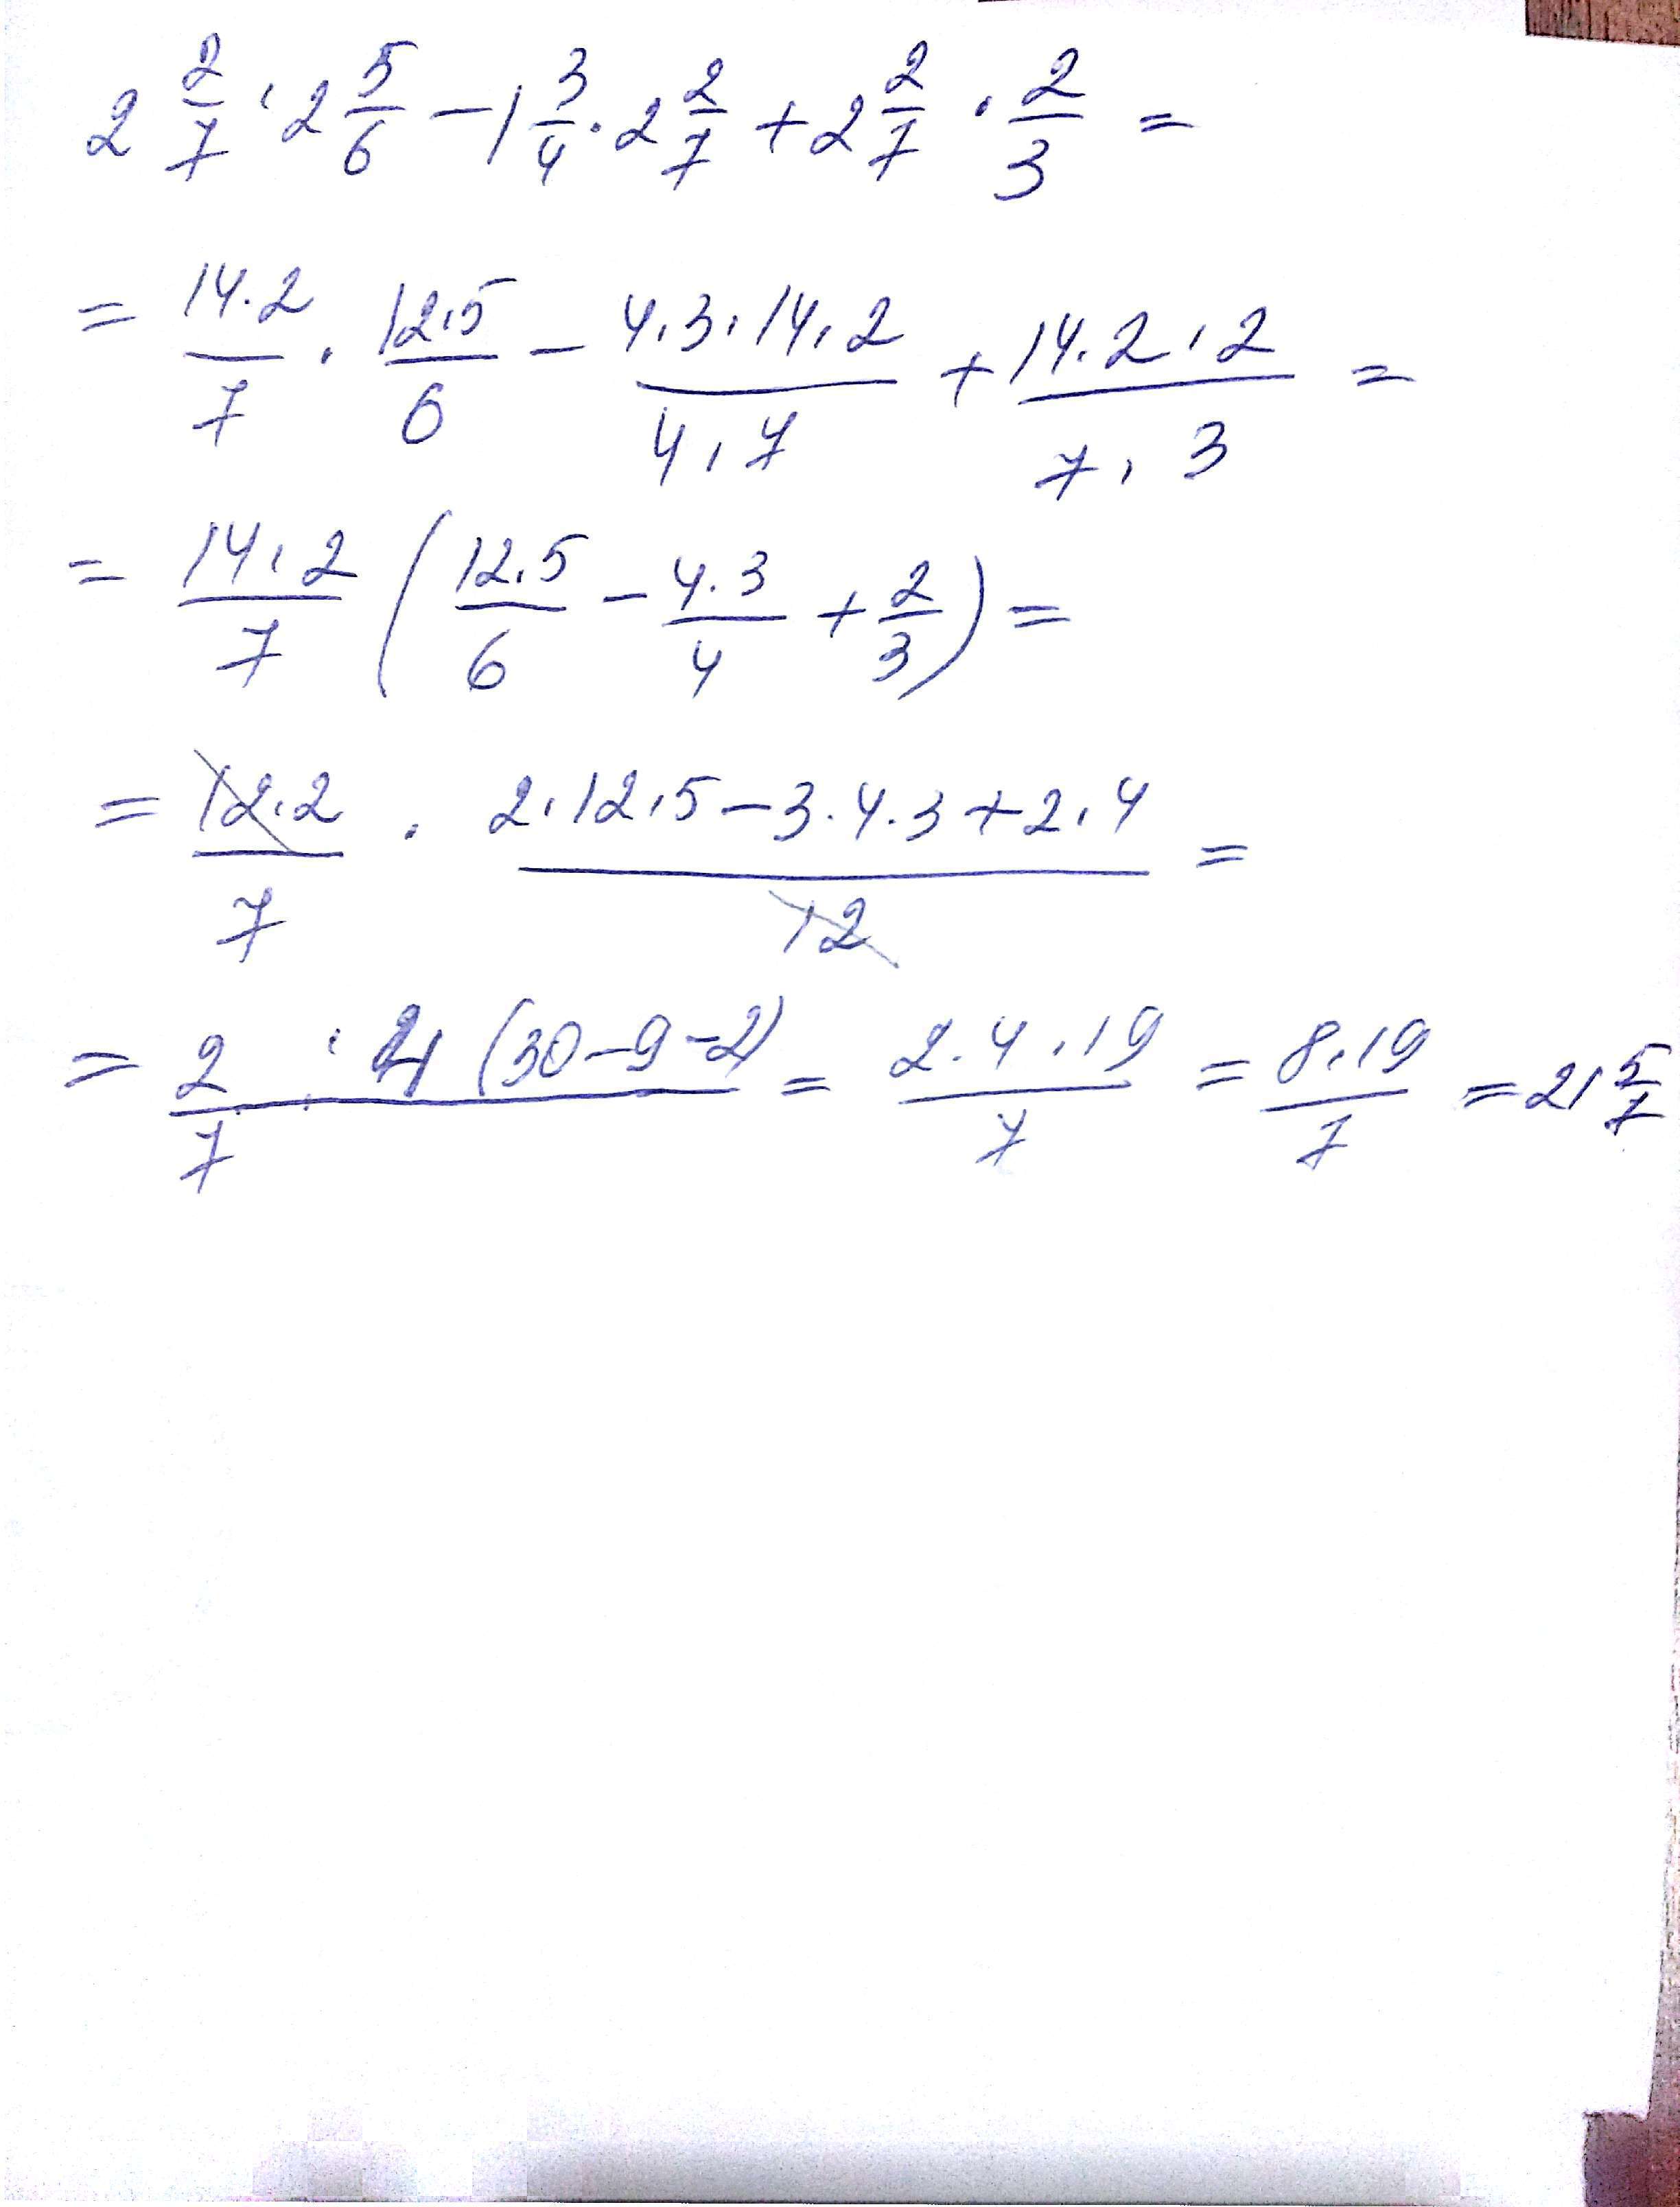 2 2/7 · 2 5/6 − 1 3/4 · 2 2/7 + 2 2/7 · 2/3 =
= 14·2/7 · 12·5/6 − 4·3·14·2/4·7 + 14·2·2/7·3 =
= 14·2/7 (12·5/6 − 4·3/4 + 2/3) =
= 12·2/7 · 2·12·5−3·4·3+2·4/12 =
= 2·4(30−9−2)/7 = 2·4·19/7 = 8·19/7 = 21 5/7